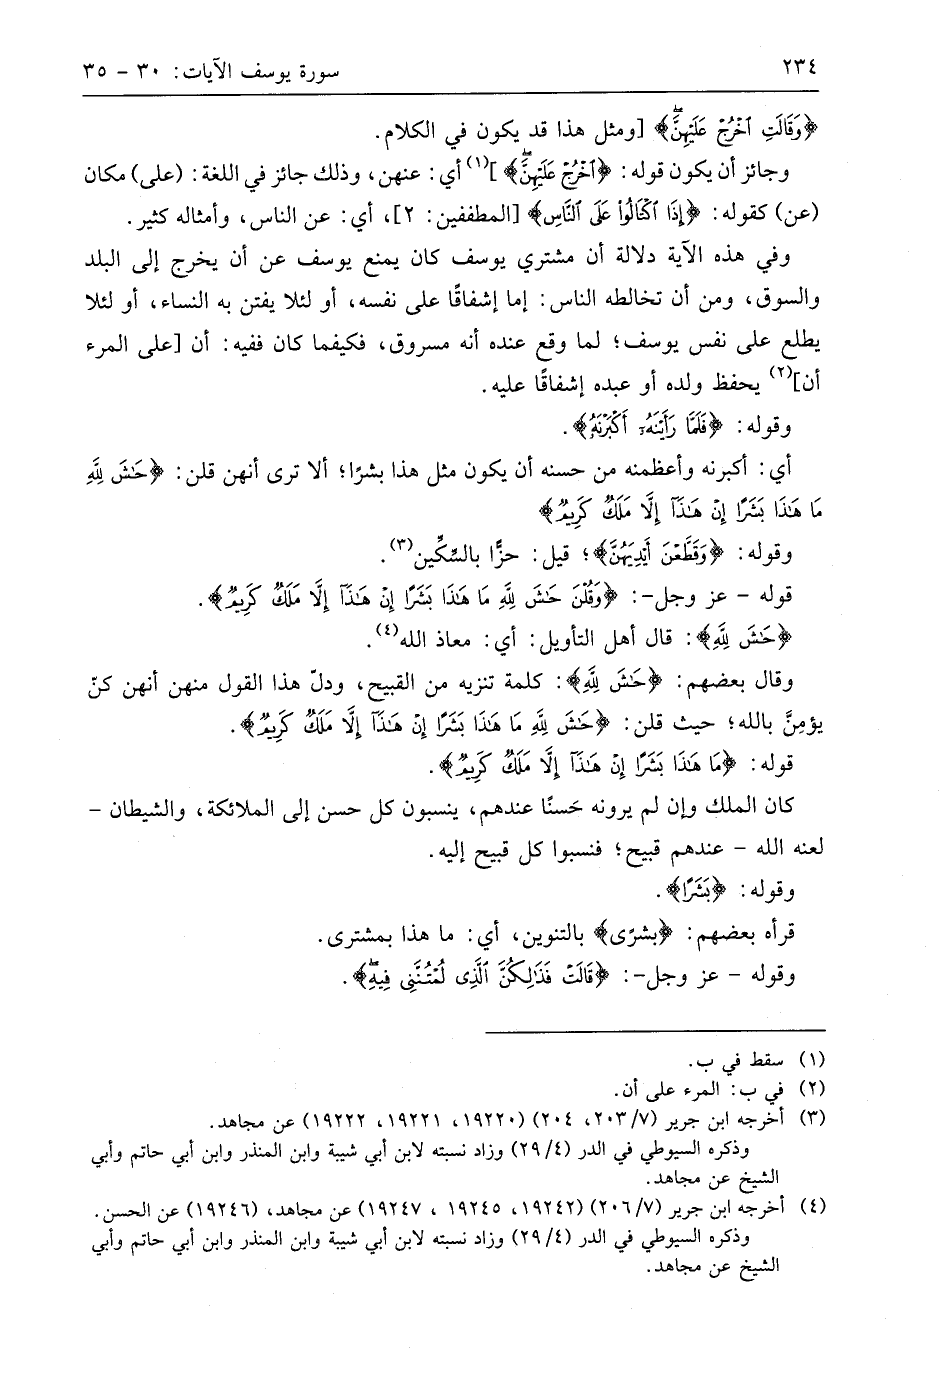 ٢٣٤
سورة يوسف الآيات: ٣٠ - ٣٥
﴿وَقَالَتِ ٱخْرُجْ عَلَيْهِنَّۖ﴾ [ومثل هذا قد يكون في الكلام.
وجائز أن يكون قوله: ﴿ٱخْرُجْ عَلَيْهِنَّۖ﴾ ](١) أي: عنهن، وذلك جائز في اللغة: (على) مكان
(عن) كقوله: ﴿إِذَا ٱكْتَالُوا۟ عَلَى ٱلنَّاسِ﴾ [المطففين: ٢]، أي: عن الناس، وأمثاله كثير.
وفي هذه الآية دلالة أن مشتري يوسف كان يمنع يوسف عن أن يخرج إلى البلد
والسوق، ومن أن تخالطه الناس: إما إشفاقًا على نفسه، أو لئلا يفتن به النساء، أو لئلا
يطلع على نفس يوسف؛ لما وقع عنده أنه مسروق، فكيفما كان ففيه: أن [على المرء
أن](٢) يحفظ ولده أو عبده إشفاقًا عليه.
وقوله: ﴿فَلَمَّا رَأَيْنَهُۥٓ أَكْبَرْنَهُ﴾.
أي: أكبرنه وأعظمنه من حسنه أن يكون مثل هذا بشرًا؛ ألا ترى أنهن قلن: ﴿حَـٰشَ لِلَّهِ
مَا هَـٰذَا بَشَرًا إِنْ هَـٰذَآ إِلَّا مَلَكٌ كَرِيمٌ﴾
وقوله: ﴿وَقَطَّعْنَ أَيْدِيَهُنَّ﴾؛ قيل: حزًّا بالسِّكِّين(٣).
قوله - عز وجل-: ﴿وَقُلْنَ حَـٰشَ لِلَّهِ مَا هَـٰذَا بَشَرًا إِنْ هَـٰذَآ إِلَّا مَلَكٌ كَرِيمٌ﴾.
﴿حَـٰشَ لِلَّهِ﴾: قال أهل التأويل: أي: معاذ الله(٤).
وقال بعضهم: ﴿حَـٰشَ لِلَّهِ﴾: كلمة تنزيه من القبيح، ودلّ هذا القول منهن أنهن كنّ
يؤمِنَّ بالله؛ حيث قلن: ﴿حَـٰشَ لِلَّهِ مَا هَـٰذَا بَشَرًا إِنْ هَـٰذَآ إِلَّا مَلَكٌ كَرِيمٌ﴾.
قوله: ﴿مَا هَـٰذَا بَشَرًا إِنْ هَـٰذَآ إِلَّا مَلَكٌ كَرِيمٌ﴾.
كان الملك وإن لم يرونه حَسنًا عندهم، ينسبون كل حسن إلى الملائكة، والشيطان -
لعنه الله - عندهم قبيح؛ فنسبوا كل قبيح إليه.
وقوله: ﴿بَشَرًا﴾.
قرأه بعضهم: ﴿بشرًى﴾ بالتنوين، أي: ما هذا بمشترى.
وقوله - عز وجل-: ﴿قَالَتْ فَذَٰلِكُنَّ ٱلَّذِى لُمْتُنَّنِى فِيهِۖ﴾.
(١) سقط في ب.
(٢) في ب: المرء على أن.
(٣) أخرجه ابن جرير (٧/ ٢٠٣، ٢٠٤) (١٩٢٢٠، ١٩٢٢١، ١٩٢٢٢) عن مجاهد.
وذكره السيوطي في الدر (٤/ ٢٩) وزاد نسبته لابن أبي شيبة وابن المنذر وابن أبي حاتم وأبي
الشيخ عن مجاهد.
(٤) أخرجه ابن جرير (٧/ ٢٠٦) (١٩٢٤٢، ١٩٢٤٥ ، ١٩٢٤٧) عن مجاهد، (١٩٢٤٦) عن الحسن.
وذكره السيوطي في الدر (٤/ ٢٩) وزاد نسبته لابن أبي شيبة وابن المنذر وابن أبي حاتم وأبي
الشيخ عن مجاهد.